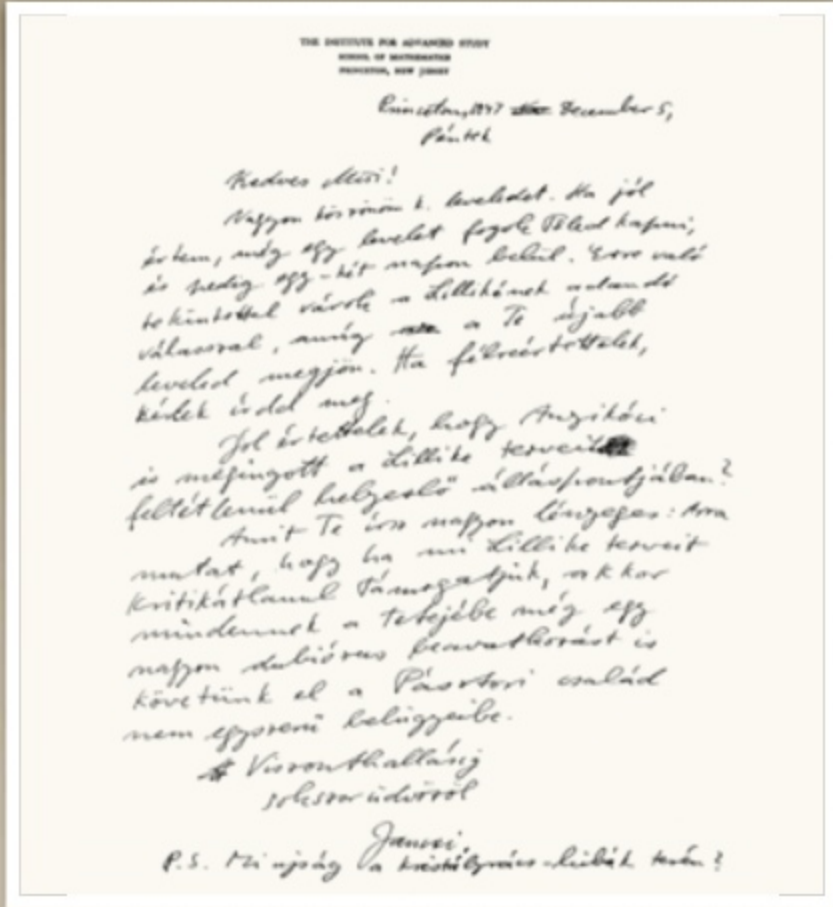 THE INSTITUTE FOR ADVANCED STUDY
SCHOOL OF MATHEMATICS
PRINCETON, NEW JERSEY
Princeton, 1947 December 5,
Péntek
Kedves Misi!
Nagyon köszönöm k. leveledet. Ha jól
értem, még egy levelet fogok Tőled kapni,
és pedig egy-két napon belül. Erre való
tekintettel várok a Lillikének adandó
válasszal, amíg a Te újabb
leveled megjön. Ha félreértettelek,
kérlek írdd meg.
Jól értettelek, hogy
is megingott a Lillike terveit
feltétlenül helyeslő álláspontjában?
Amit Te írsz nagyon lényeges: Arra
mutat, hogy ha mi Lillike terveit
kritikátlanul támogatjuk, akkor
mindennek a tetejébe még egy
nagyon dubiózus beavatkozást is
követünk el a Pásztori család
nem egyszerű belügyeibe.
Viszonthallásig
sokszor üdvözöl
Jancsi
P.S. Mi ujság a kristályrács-hibák terén?